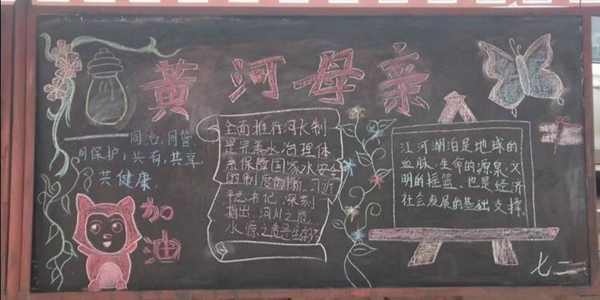 黄河母亲
同治，同管，
同保护，共有，共享，
共健康，
加
油
全面推行河长制
是完善水治理体
系保障国家水安全
的制度创新，习近
平总书记，深刻
指出，河川之危，
水源之危是生存
江河湖泊是地球的
血脉，生命的源泉，文
明的摇篮，也是经济
社会发展的基础支撑
七二